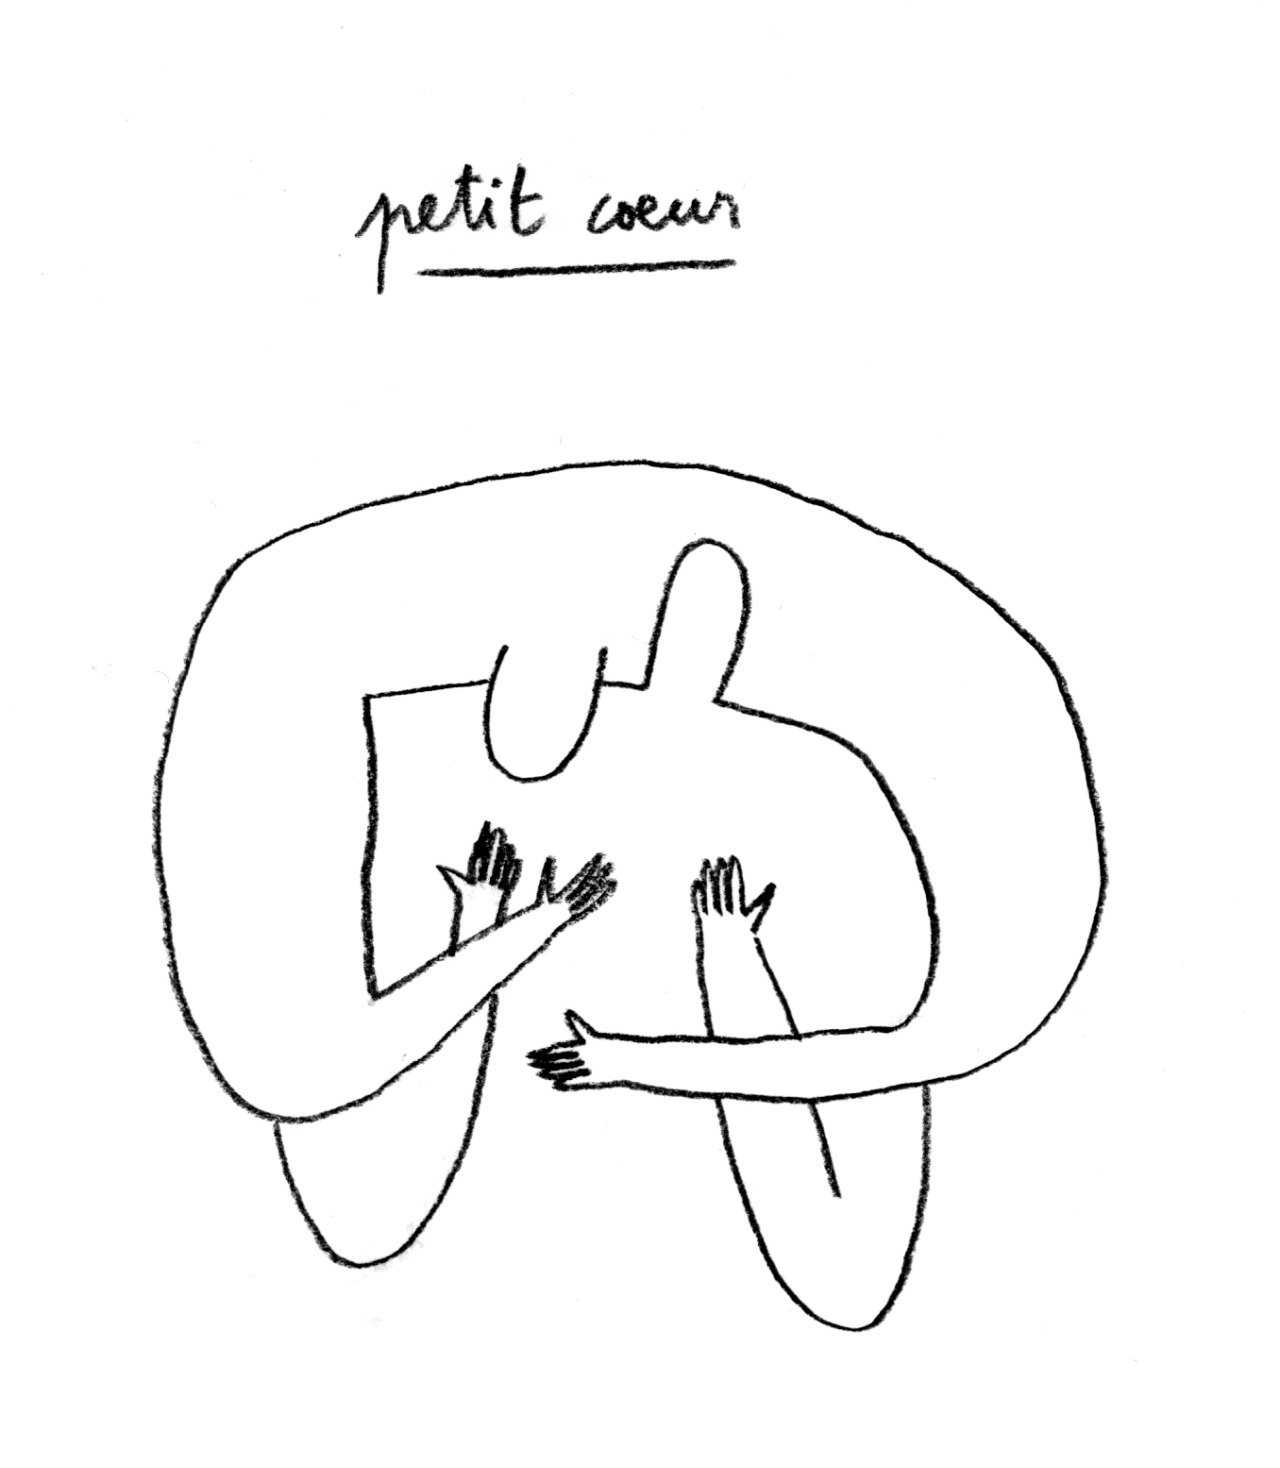 petit coeur